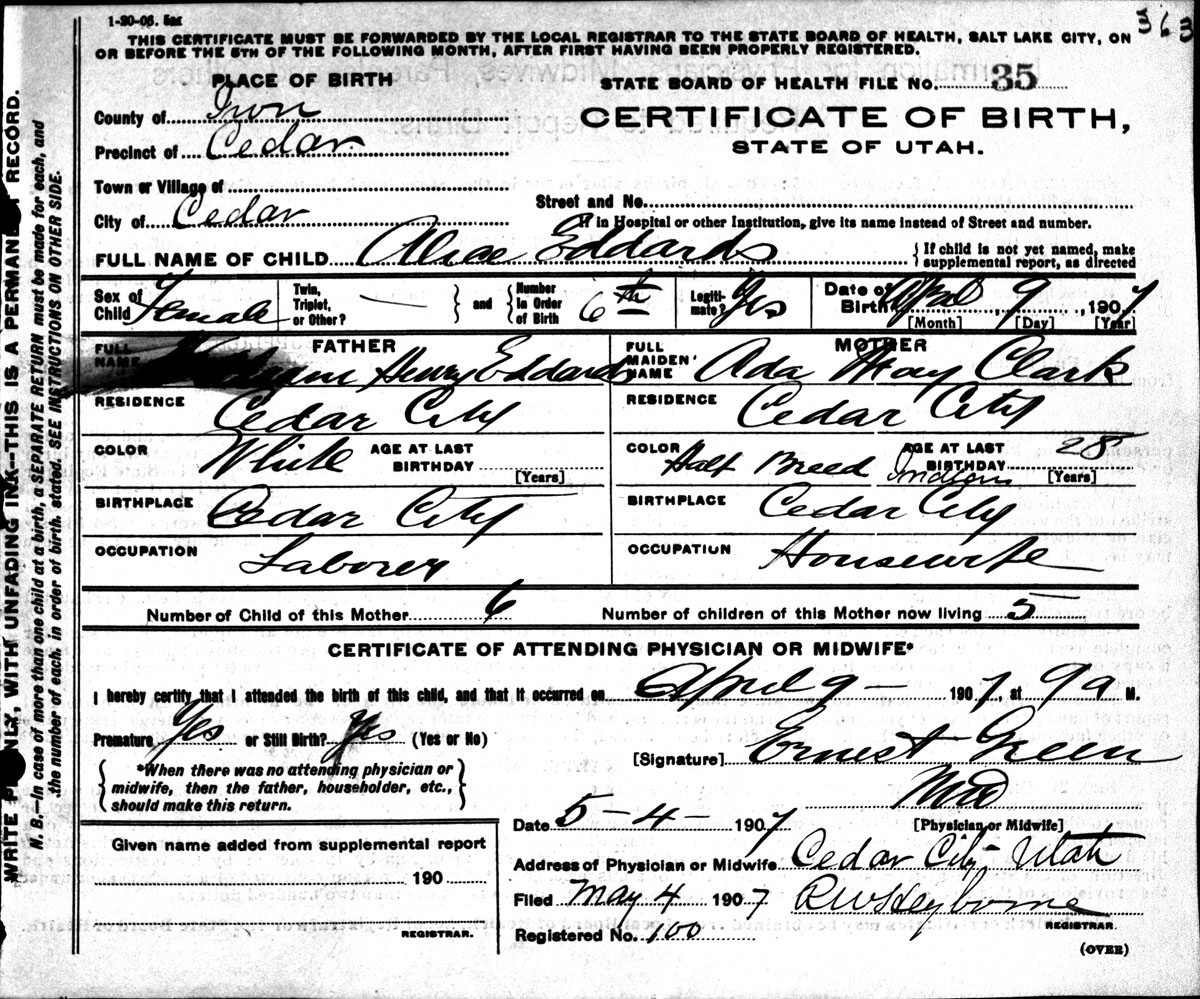 1-20-06. 5m
363
THIS CERTIFICATE MUST BE FORWARDED BY THE LOCAL REGISTRAR TO THE STATE BOARD OF HEALTH, SALT LAKE CITY, ON
OR BEFORE THE 5TH OF THE FOLLOWING MONTH, AFTER FIRST HAVING BEEN PROPERLY REGISTERED.
PLACE OF BIRTH
STATE BOARD OF HEALTH FILE NO. 35
County of Iron
CERTIFICATE OF BIRTH,
Precinct of Cedar
STATE OF UTAH.
Town or Village of
Street and No.
City of Cedar
If in Hospital or other Institution, give its name instead of Street and number.
FULL NAME OF CHILD Alice Eddards { If child is not yet named, make
supplemental report, as directed
Sex of Child Female
Twin, Triplet, or Other? — } and { Number in Order of Birth 6th
Legiti- mate? Yes
Date of Birth April 9, 1907
[Month] [Day] [Year]
FATHER
FULL NAME Henry Eddards
RESIDENCE Cedar City
COLOR White AGE AT LAST BIRTHDAY [Years]
BIRTHPLACE Cedar City
OCCUPATION Laborer
MOTHER
FULL MAIDEN NAME Ada May Clark
RESIDENCE Cedar City
COLOR Half Breed Indian AGE AT LAST BIRTHDAY 28 [Years]
BIRTHPLACE Cedar City
OCCUPATION Housewife
Number of Child of this Mother 6 Number of children of this Mother now living 5
CERTIFICATE OF ATTENDING PHYSICIAN OR MIDWIFE*
I hereby certify that I attended the birth of this child, and that it occurred on April 9 — 1907, at 9 a M.
Premature Yes or Still Birth? Yes (Yes or No)
[Signature] Ernest Green
{ *When there was no attending physician or
midwife, then the father, householder, etc.,
should make this return. }
MD
[Physician or Midwife]
Date 5 - 4 - 1907
Given name added from supplemental report
190
REGISTRAR.
Address of Physician or Midwife Cedar City Utah
Filed May 4 1907 R W Heyborne
REGISTRAR.
Registered No. 100
(OVER)
WRITE PLAINLY, WITH UNFADING INK--THIS IS A PERMANENT RECORD.
N. B.—In case of more than one child at a birth, a SEPARATE RETURN must be made for each, and
the number of each, in order of birth, stated. SEE INSTRUCTIONS ON OTHER SIDE.